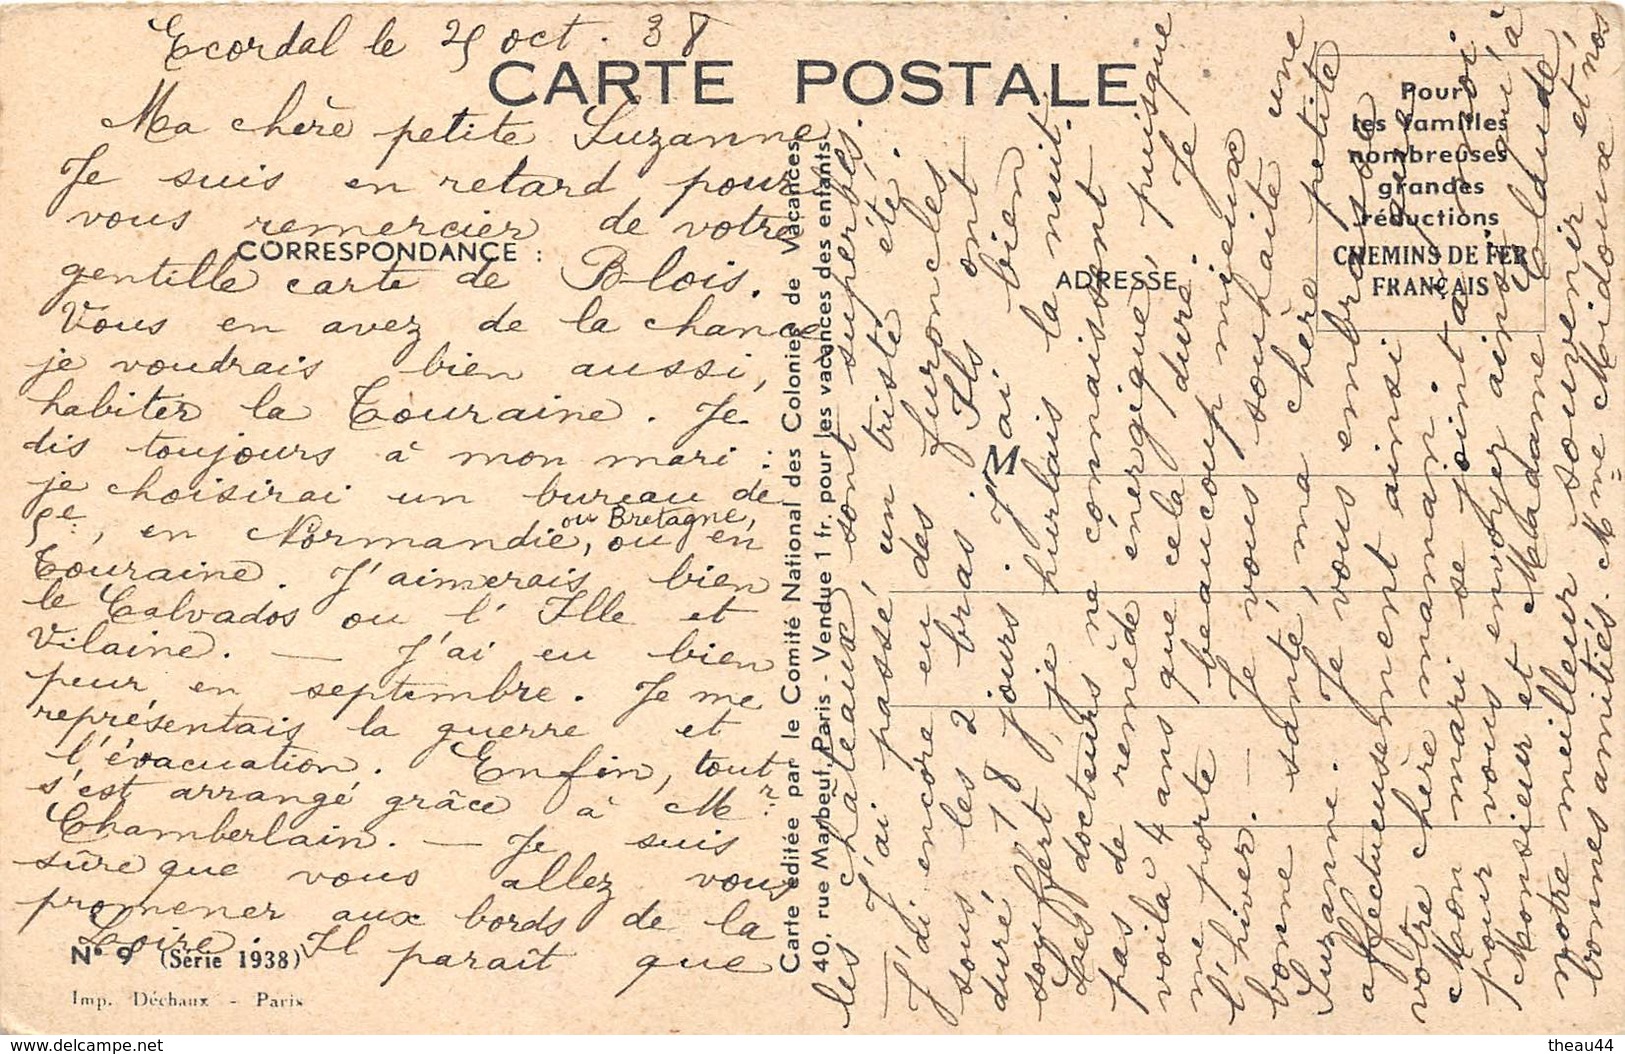 Ecordal le 25 oct. 38
CARTE POSTALE
Ma chère petite Suzanne
Je suis en retard pour
vous remercier de votre
CORRESPONDANCE :
gentille carte de Blois.
Vous en avez de la chance
je voudrais bien aussi,
habiter la Touraine. Je
dis toujours à mon mari :
je choisirai un bureau de
5e, en Normandie, ou Bretagne, ou en
Touraine. J'aimerais bien
le Calvados ou l'Ille et
Vilaine. — J'ai eu bien
peur en septembre. Je me
représentais la guerre et
l'évacuation. Enfin, tout
s'est arrangé grâce à Mr
Chamberlain. — Je suis
sûre que vous allez vous
promener aux bords de la
Loire. Il paraît que
N° 9 (Série 1938)
Imp. Déchaux - Paris
Carte éditée par le Comité National des Colonies de Vacances
40, rue Marbeuf, Paris - Vendue 1 fr. pour les vacances des enfants
les châteaux sont superbes.
J'ai passé un triste été.
J'di encore eu des furoncles
sous les 2 bras. Ils ont
duré 18 jours. J'ai bien
souffert, je hurlais la nuit.
Les docteurs ne connaissent
pas de remède énergique, puisque
voilà 4 ans que cela dure. Je
me porte beaucoup mieux
l'hiver. — Je vous souhaite une
bonne santé, ma chère petite
Suzanne. Je vous embrasse
affectueusement ainsi que
votre chère maman.
Mon mari se joint à moi
pour vous envoyer ainsi qu'à
Monsieur et Madame Claude,
notre meilleur souvenir et nos
bonnes amitiés. Mme Maidoux
M
ADRESSE
Pour
les familles
nombreuses
grandes
réductions
CHEMINS DE FER
FRANÇAIS
https://www.delcampe.net
theau44